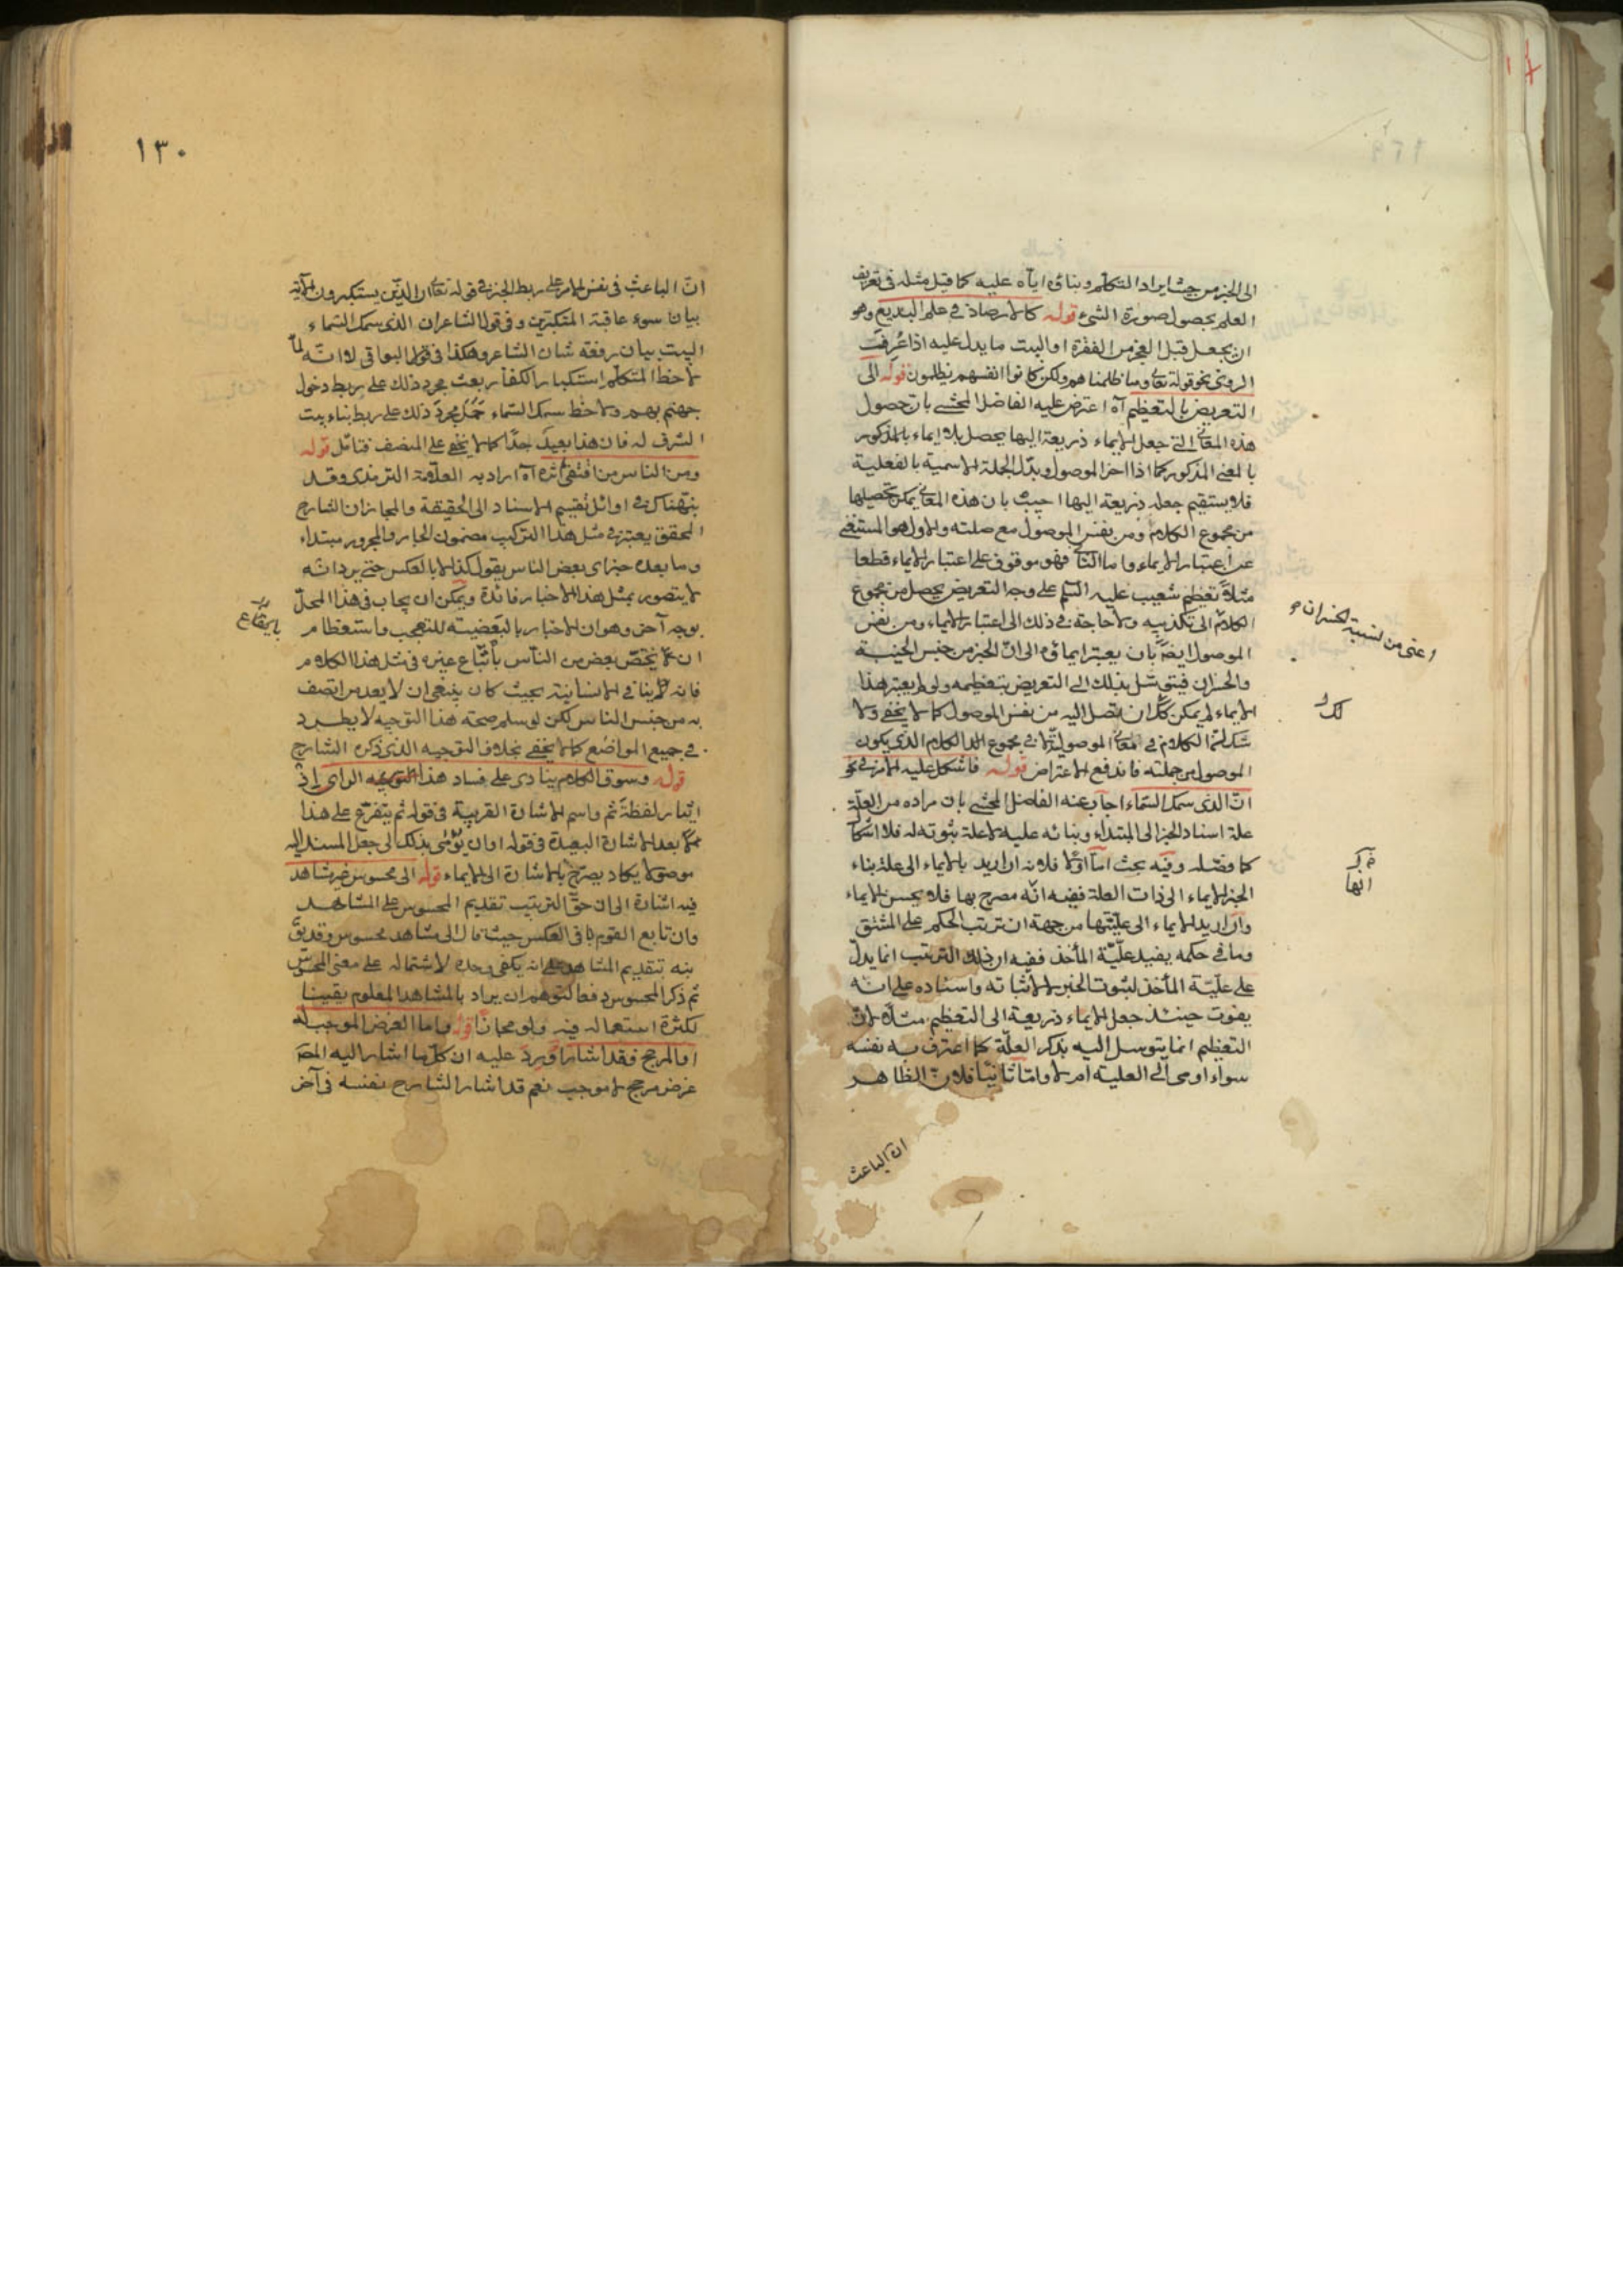 الى الخبر من حيث ايراد المتكلم وبناؤه اياه عليه كما قيل مثله فى تعريف
العلم بحصول صورة الشئ قوله كالارصاد فى علم البديع وهو
ان يجعل قبل العجز من الفقرة او البيت ما يدل عليه اذا عرفت
الروى نحو قوله تعالى وما ظلمناهم ولكن كانوا انفسهم يظلمون قوله الى
التعريض بالتعظيم آه اعترض عليه الفاضل المحشى بان حصول
هذه المعانى التى جعل الايماء ذريعة اليها يحصل بلا ايماء بالمذكور
بالمعنى المذكور كما اذا اخر الموصول وبدل الجملة الاسمية بالفعلية
فلا يستقيم جعله ذريعة اليها اجيب بان هذه المعانى يمكن تحصيلها
من مجموع الكلام ومن نفس الموصول مع صلته والاول هو المستغنى
عن اعتبار الايماء واما الثانى فهو موقوف على اعتبار الايماء قطعا
مثلا تعظيم شعيب عليه السلم على وجه التعريض يحصل من مجموع
الكلام الى تكذيبه ولا حاجة فى ذلك الى اعتبار الايماء ومن نفس
الموصول ايضا بان يعتبر ايماؤه الى ان الخبر من جنس الخيبة
والخسران فيتوسل بذلك الى التعريض بتعظيمه ولو لم يعتبر هذا
الايماء لم يمكن ان يتصل اليه من نفس الموصول كما لا يخفى ولا
شك انما الكلام فى معانى الموصولية لا فى مجموع الكلام الذى يكون
الموصول من جملته فاندفع الاعتراض قوله فاشكل عليه الامر فى نحو
ان الذى سمك السماء اجاب عنه الفاضل المحشى بان مراده من العلة
علة اسناد الخبر الى المبتداء وبنائه عليه لا علة ثبوته له فلا اشكال
كما فصله وفيه بحث اما اولا فلانه ان اريد بالايماء الى علة بناء
الخبر الايماء الى ذات العلة ففيه انه مصرح بها فلا يحسن الايماء
وان اريد الايماء الى عليتها من جهة ان ترتب الحكم على المشتق
وما فى حكمه يفيد علية المأخذ ففيه ان ذلك الترتب انما يدل
على علية المأخذ لثبوت الخبر لا لاثباته واسناده على انه
يفوت حينئذ جعل الايماء ذريعة الى التعظيم مثلا لان
التعظيم انما يتوسل اليه بذكر العلة كما اعترف به نفسه
سواء اومى الى العلية ام لا واما ثانيا فلان الظاهر
ان الباعث
اعنى من لتسببه الخسران
لك
انها
١٣٠
ان الباعث فى نفس الامر على ربط الخبر فى قوله تعالى ان الذين يستكبرون الآية
بيان سوء عاقبة المتكبرين وفى قول الشاعر ان الذى سمك السماء
البيت بيان رفعة شان الشاعر وهكذا فى قول البواقى لا انه لما
لاحظ المتكلم استكبار الكفار بعث مجرد ذلك على ربط دخول
جهنم بهم ولاحظ سمك السماء مجرد ذلك على ربط بناء بيت
الشرف له فان هذا بعيد جدا كما لا يخفى على المنصف فتأمل قوله
ومن الناس من اقتفى اثره آه اراد به العلامة الترمذى وقد
نبهناك فى اوائل تقسيم الاسناد الى الحقيقة والمجاز ان الشارح
المحقق يعتبر فى مثل هذا التركيب مضمون الجار والمجرور مبتداء
وما بعده خبرا اى بعض الناس يقول كذا لا بالعكس حتى يرد انه
لا يتصور بمثل هذا الاخبار فائدة ويمكن ان يجاب فى هذا المحل
بوجه آخر وهو ان الاخبار بالبعضية للتعجب واستعظام
ان يختص بعض من الناس باتباع غيره فى مثل هذا الكلام
فانه ينافى الانسانية بحيث كان ينبغى ان لا يعد من اتصف
به من جنس الناس لكن لو سلم صحة هذا التوجيه لا يطرد
فى جميع المواضع كما لا يخفى بخلاف التوجيه الذى ذكره الشارح
قوله وسوق الكلام ينادى على فساد هذا الراى اذ
ايثار لفظة ثم واسم الاشارة القريبة فى قوله ثم يتفرع على هذا
بعد الاشارة البعيدة فى قوله او ان يؤمى بذلك الى جعل المسند اليه
موصولا يكاد يصرح بالاشارة الى الايماء قوله الى محسوس غير مشاهد
فيه اشارة الى ان حق الترتيب تقديم المحسوس على المشاهد
وان تابع القوم باقى العكس حيث قال الى مشاهد محسوس وقد
بنه بتقديم المشاهد على انه يكفى وحده لاشتماله على معنى المحسوس
ثم ذكر المحسوس دفعا لتوهم ان يراد بالمشاهد المعلوم يقينا
لكثرة استعماله فيه ولو مجازا قوله واما الغرض الموجب له
او المرجح فقد اشار اورد عليه ان كل ما اشار اليه المصـ
غرض مرجح لا موجب نعم قد اشار الشارح نفسه فى آخر